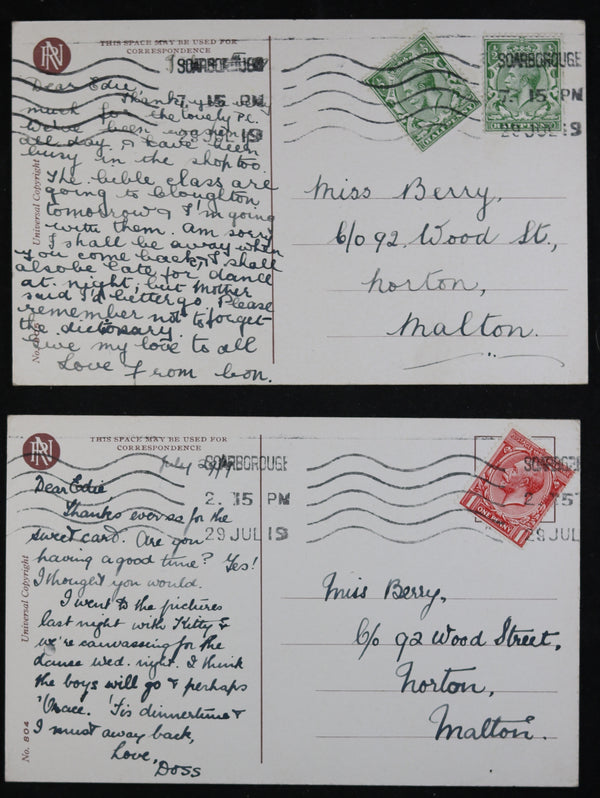 RN
THIS SPACE MAY BE USED FOR
CORRESPONDENCE
SCARBOROUGH
7. 15 PM
JUL 19
SCARBOROUGH
7. 15 PM
JUL 19
Dear Edie,
Thank you very
much for the lovely P.C.
We've been
all day, & have been
busy in the shop too.
The bible class are
going to Cloughton
tomorrow & I'm going
with them. Am sorry
I shall be away when
you come back, & I shall
also be late for dance
at night, but Mother
said I'd better go. Please
remember not to forget
the dictionary.
Give my love to all
Love from
Universal Copyright
Miss Berry,
C/o 92, Wood St.,
Norton,
Malton.
RN
THIS SPACE MAY BE USED FOR
CORRESPONDENCE
July
SCARBOROUGH
2. 15 PM
29 JUL 19
2. 15
29 JUL 19
ONE PENNY
Dear Edie,
Thanks ever so for the
sweet card. Are you
having a good time? Yes!
I thought you would.
I went to the pictures
last night with Kitty &
we're canvassing for the
dance Wed. night. I think
the boys will go & perhaps
'Tis dinnertime &
I must away back,
Love,
Doss
Universal Copyright
No. 804
Miss Berry,
C/o 92 Wood Street,
Norton,
Malton.